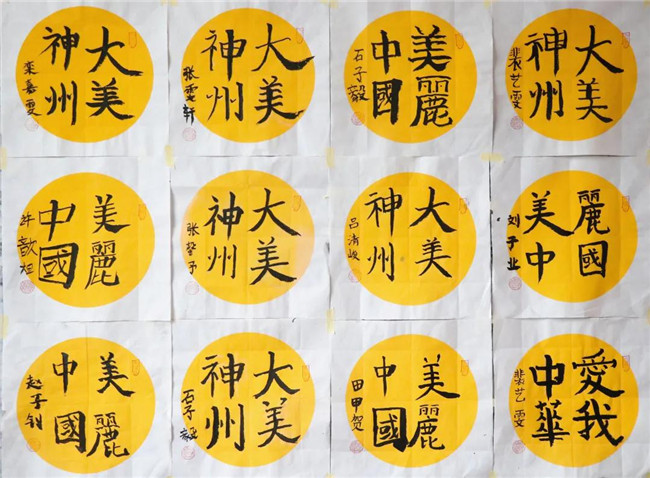 大美
神州
栾嘉雯
大美
神州
张雯轩
美麗
中國
石子毅
大美
神州
裴艺雯
美麗
中國
大美
神州
大美
神州
吕清峻
麗國
美中
刘子业
美麗
中國
大美
神州
石子毅
美麗
中國
田甲贺
愛我
中華
裴艺雯